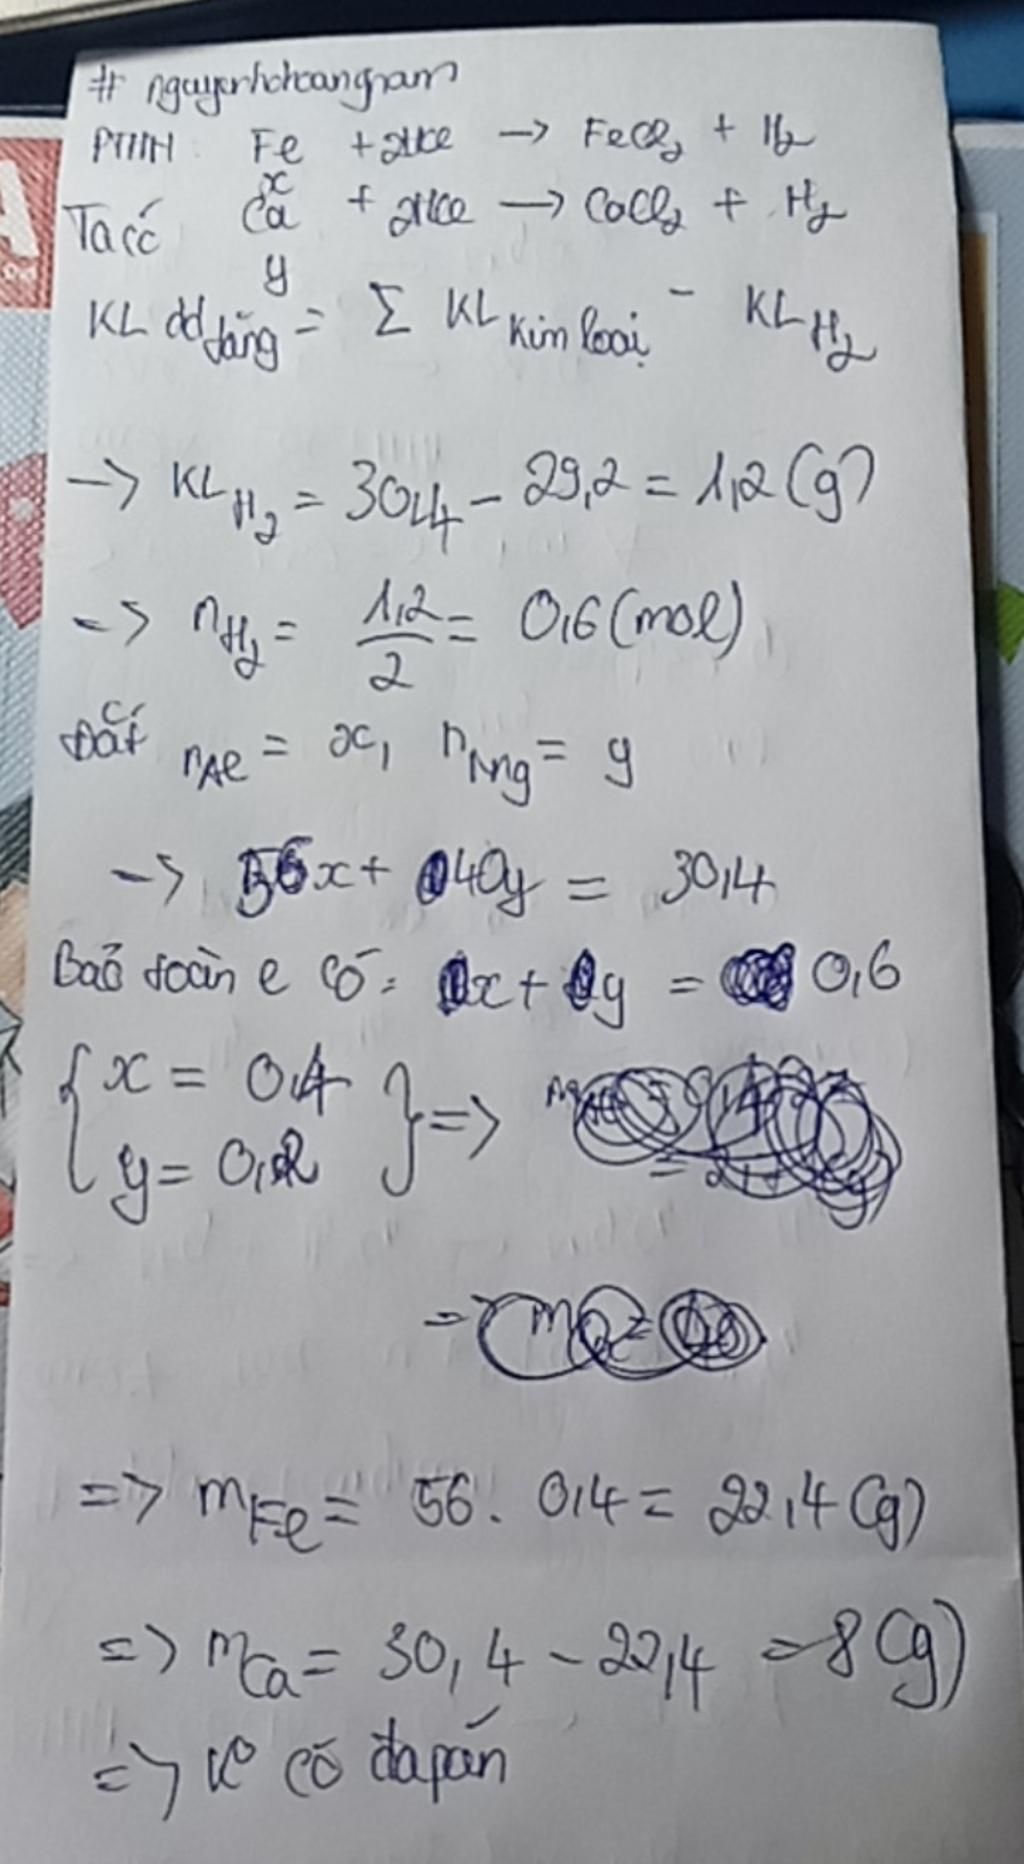 # nguyenhohoangnam
PTHH: Fe + 2HCl -> FeCl2 + H2
x
Ta có Ca + 2HCl -> CaCl2 + H2
y
KL dd tăng = Σ KL Kim loại - KL H2
-> KL H2 = 30,4 - 29,2 = 1,2 (g)
-> nH2 = 1,2/2 = 0,6 (mol)
Đặt nAl = x, nMg = y
-> 56x + 40y = 30,4
Bảo toàn e có: x + y = 0,6
{ x = 0,4
y = 0,2 } =>
=> mFe = 56. 0,4 = 22,4 (g)
=> mCa = 30,4 - 22,4 = 8 (g)
=> K° có đapán